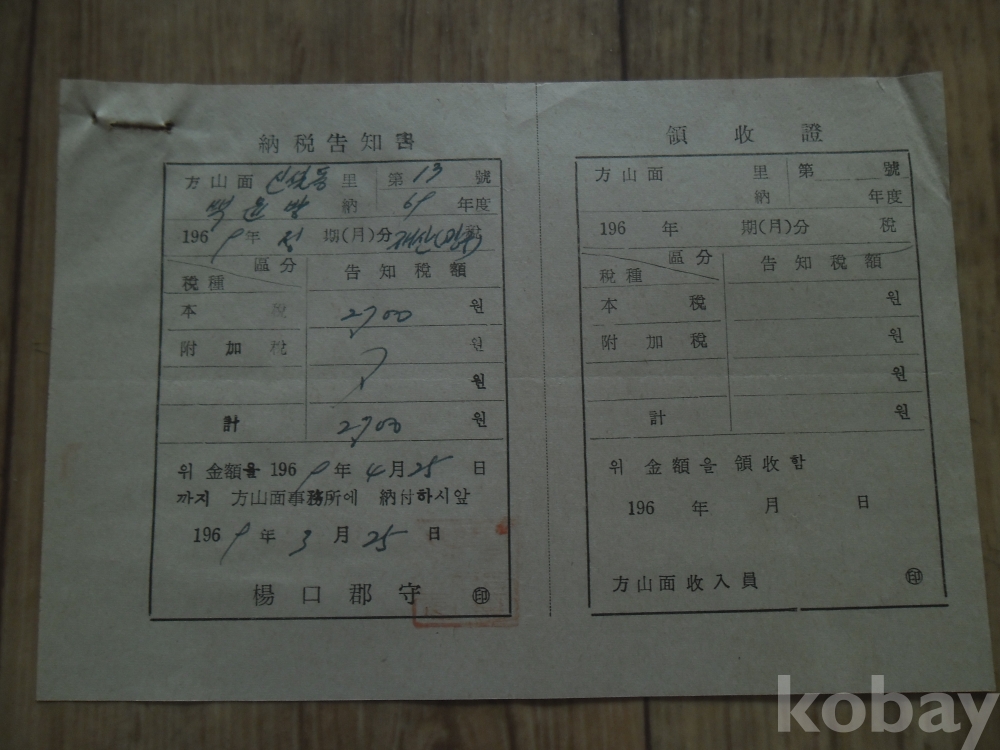 納税告知書
方山面 里 第 13 號
納 69 年度
196 9 年 期(月)分 税
區分
税種
告知税額
本 税 2700 원
附加税 원
원
計 2700 원
위 金額을 196 9 年 4 月 25 日
까지 方山面事務所에 納付하시앞
196 9 年 3 月 25 日
楊口郡守 印
領收證
方山面 里 第 號
納 年度
196 年 期(月)分 税
區分
税種
告知税額
本 税 원
附加税 원
원
計 원
위 金額을 領收함
196 年 月 日
方山面收入員 印
kobay